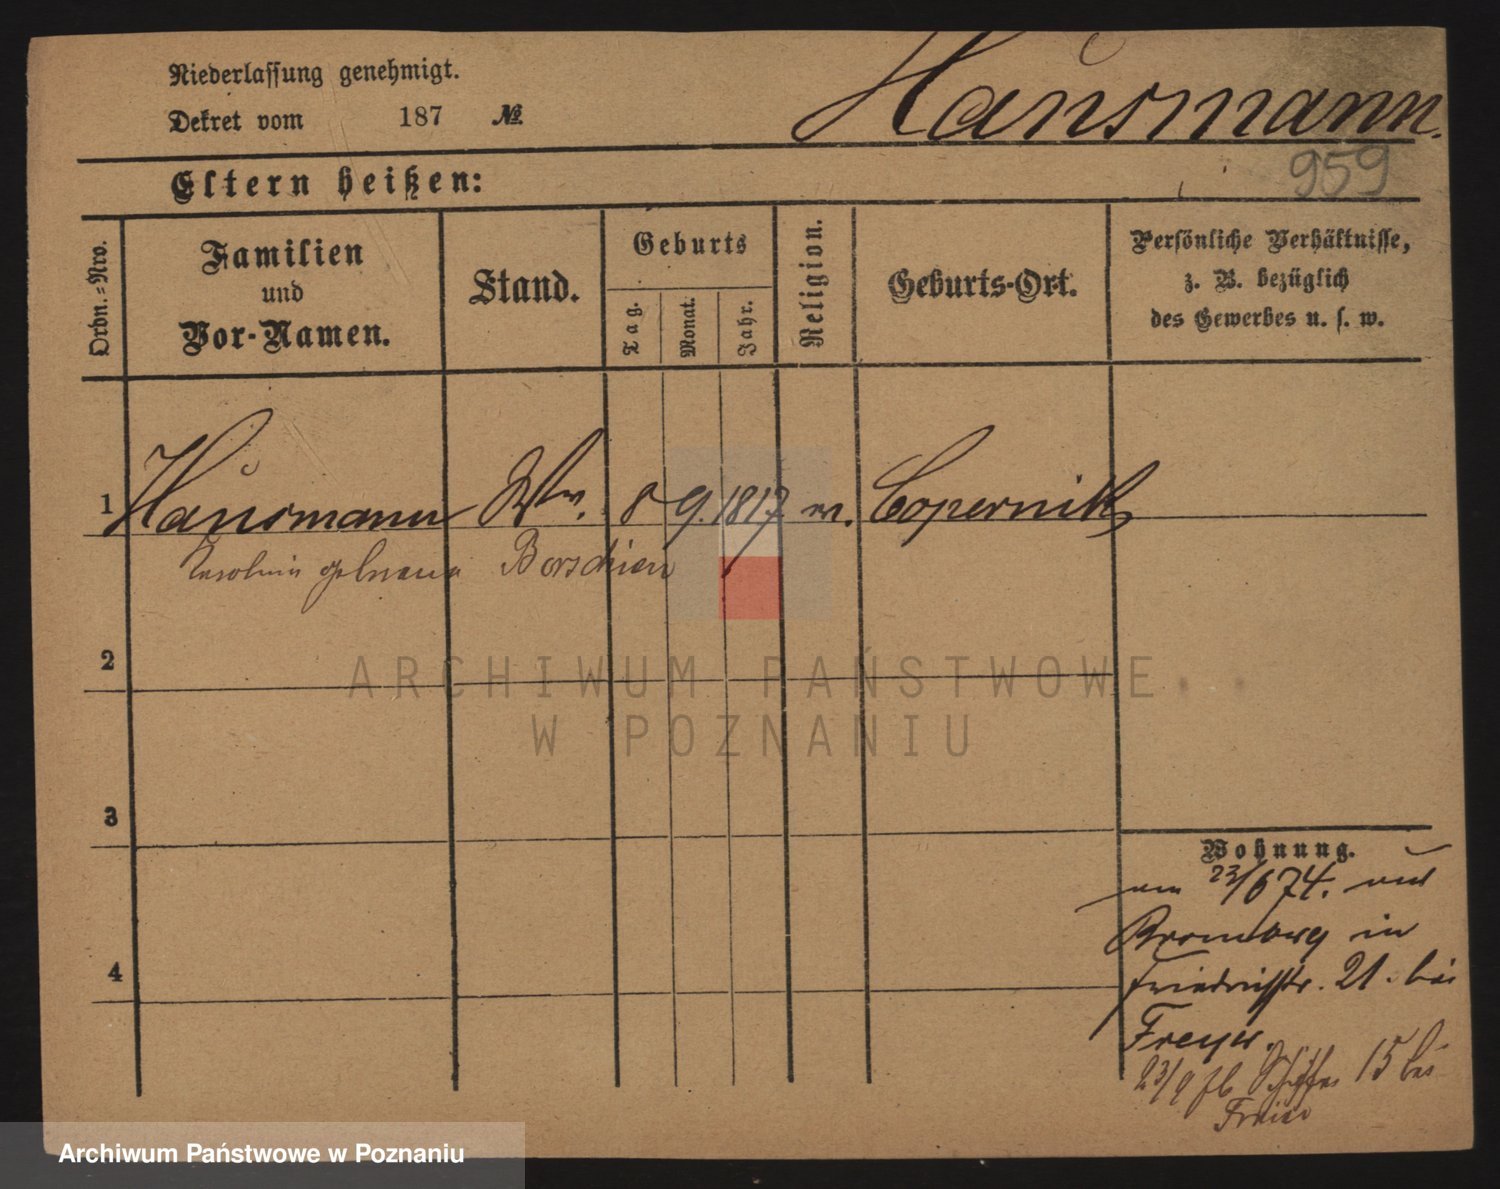 Niederlassung genehmigt.
Dekret vom 187 №
Hausmann.
959
Eltern heißen:
Ordn.-Nro.
Familien und Vor-Namen.
Stand.
Geburts
Tag.
Monat.
Jahr.
Religion.
Geburts-Ort.
Persönliche Verhältnisse,
z. B. bezüglich
des Gewerbes u. s. w.
1 Hausmann Ww. 8 9. 1817 Copernitz
geborene Borschien
2
3
4
Wohnung.
23/6 74. aus
Bromberg in
Friedrichstr. 21. bei
Freyer.
23/9 Schiffer 15 bei
Freier
ARCHIWUM PAŃSTWOWE
W POZNANIU
Archiwum Państwowe w Poznaniu